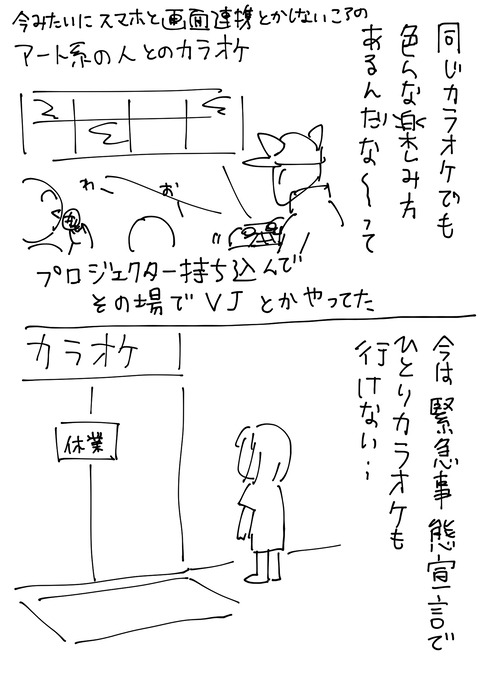 同じカラオケでも
色んな楽しみ方
あるんだな〜って
今みたいにスマホと画面連携とかしないころの
アート系の人とのカラオケ
わー
おー
プロジェクター持ち込んで
その場でVJとかやってた
今は緊急事態宣言で
ひとりカラオケも
行けない…
カラオケ
休業